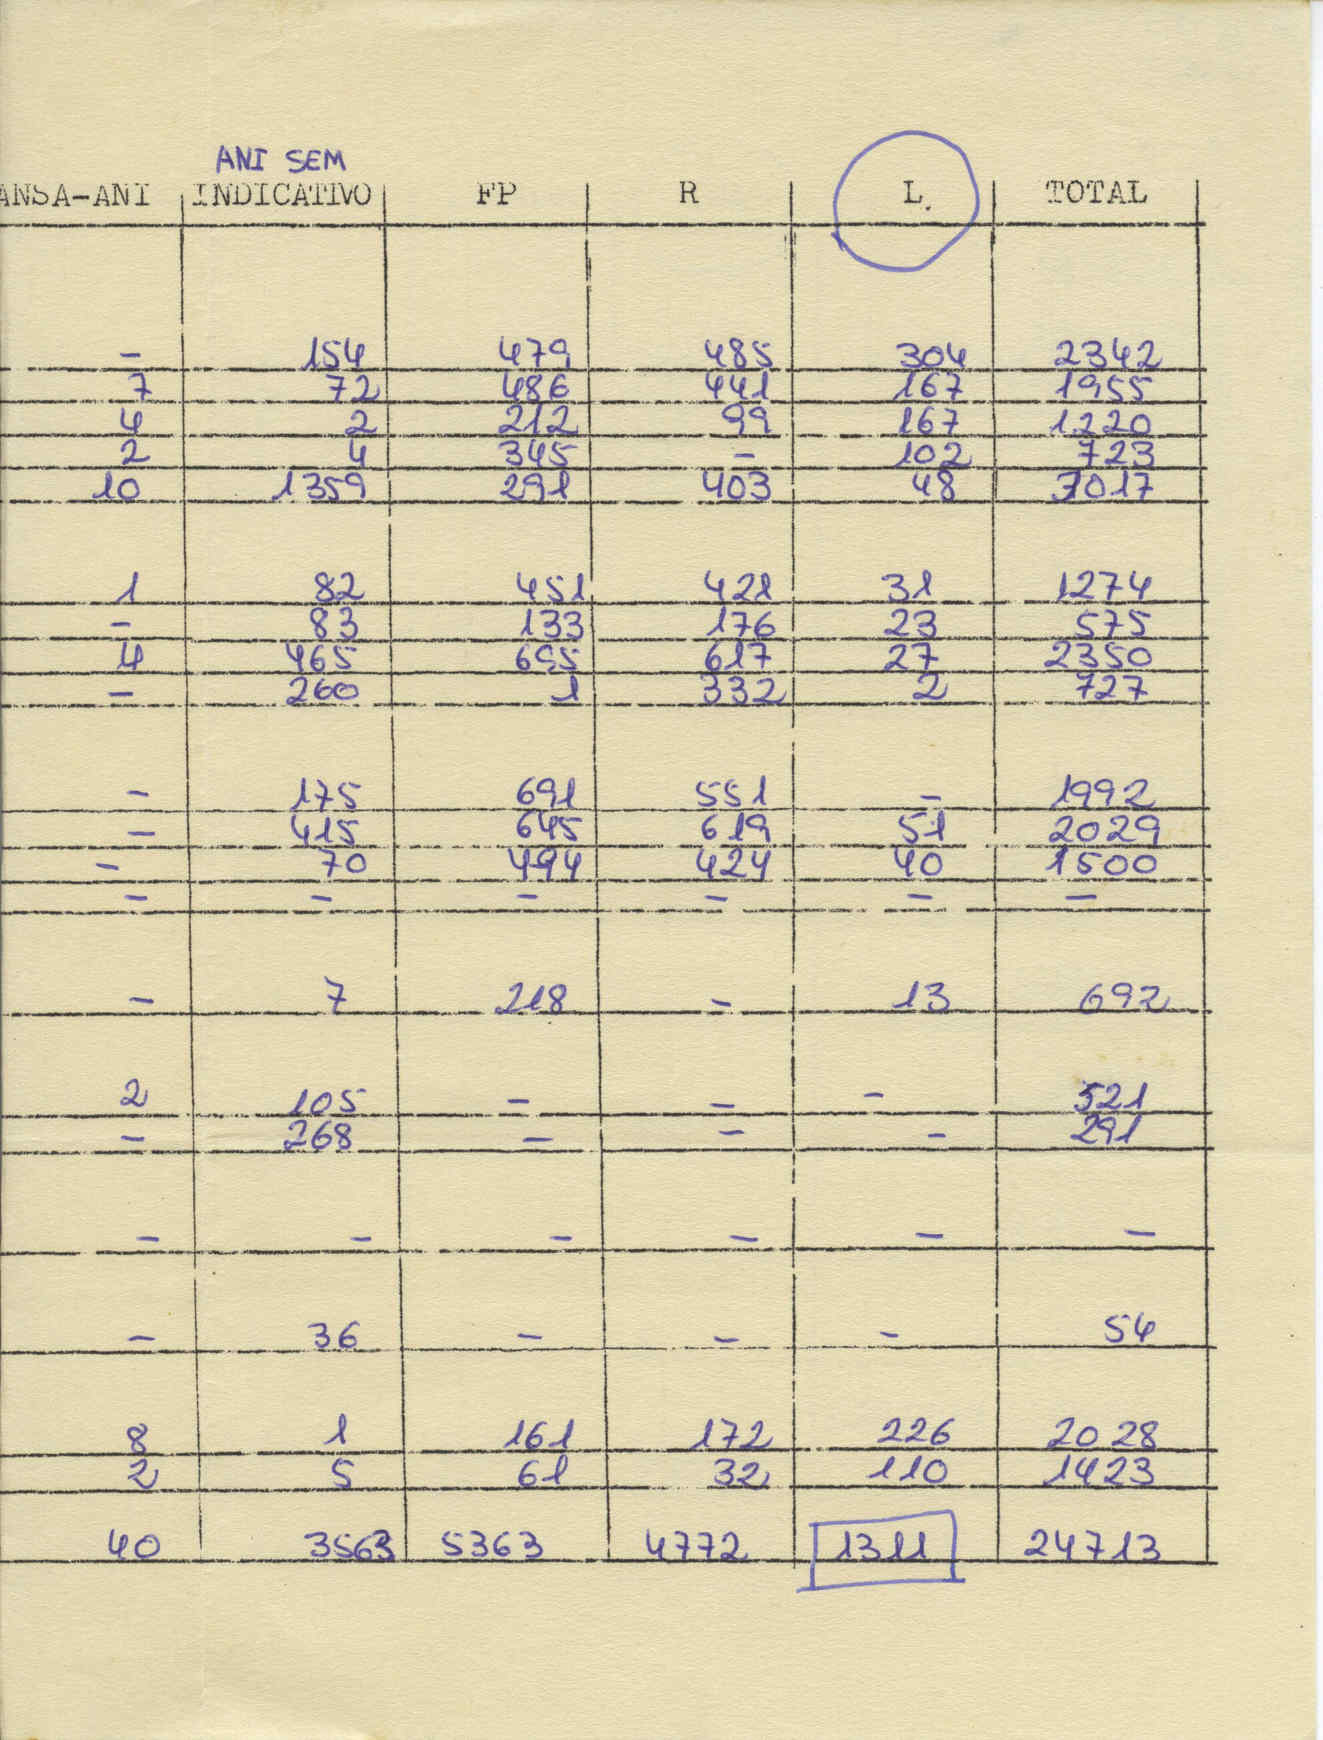 ANI SEM
ANSA-ANI INDICATIVO FP R L. TOTAL
- 154 479 485 304 2342
7 72 486 441 167 1955
4 2 212 99 167 1220
2 4 345 - 102 723
10 1359 291 403 48 3017
1 82 451 421 31 1274
- 83 133 176 23 575
4 465 695 617 27 2350
- 260 1 332 2 727
- 175 691 551 - 1992
- 415 645 619 51 2029
- 70 494 424 40 1500
- - - - - -
- 7 218 - 13 692
2 105 - - - 521
- 268 - - - 291
- - - - - -
- 36 - - - 54
8 1 161 172 226 2028
2 5 61 32 110 1423
40 3563 5363 4772 1311 24713